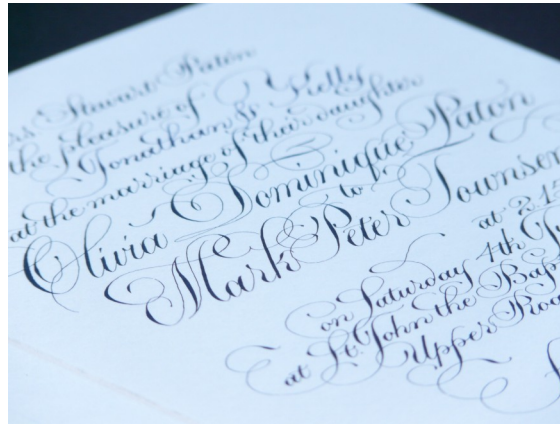 Stewart Paton
the pleasure of
Jonathan St. Kelly
at the marriage of their daughter
Olivia Dominique Paton
to
Mark Peter Townsen
at 2.15
on Saturday 4th
at St. John the Bap
Upper Roa